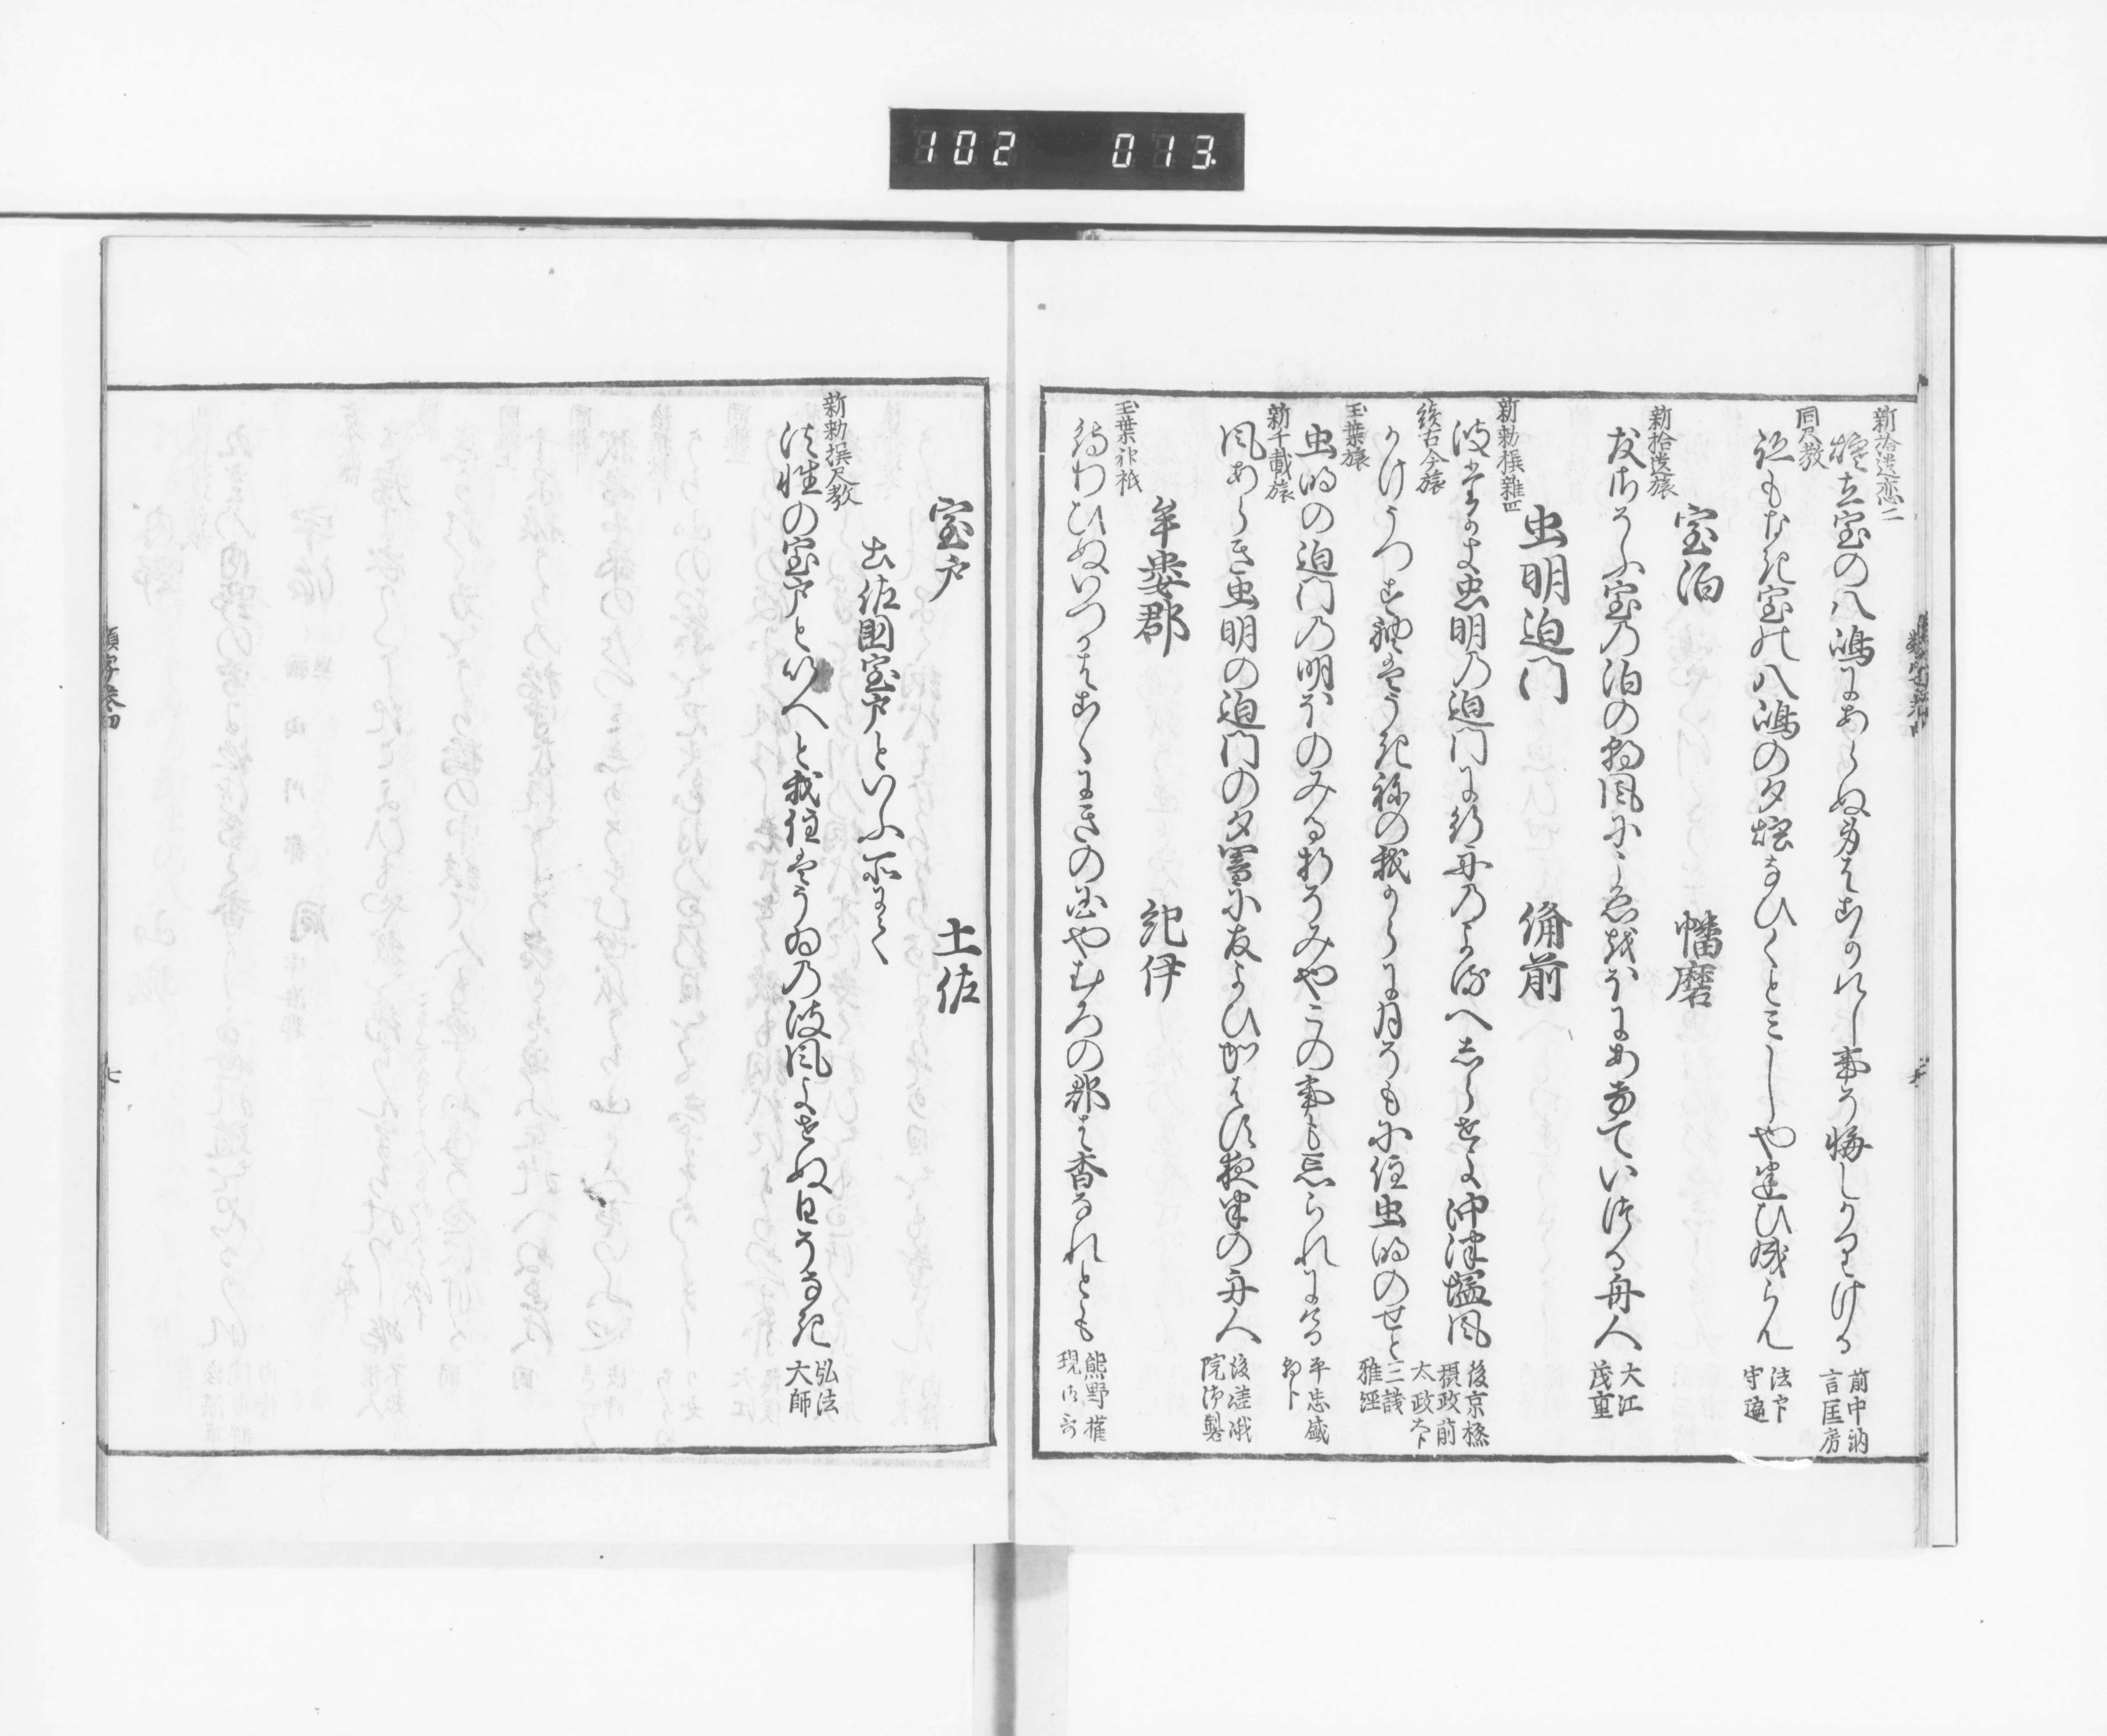 102 013
新拾遺恋二
煙立室の八嶋にあらぬ身はこかれし事そ悔しかりける 前中納言匡房
同尺教
跡もなき室の八嶋の夕煙なひくとみしや迷ひ成らん 法印守遍
室泊 幡磨
新拾遺旅
友さそふ室の泊の朝風にこゑをほにあけていつる舟人 大江茂重
虫明迫门 備前
新勅撰雑四
波たかき虫明の迫门に行舟のよるへしらせよ沖津塩風 後京極摂政前太政大臣
続古今旅
かけうつす袖はうき袮の我からに月そもに住虫明のせと 三議雅経
玉葉旅
虫明の迫门の明ほのみる折そみやこの事も忘られにける 平忠盛朝臣
新千載旅
风あらき虫明の迫门の夕霧に友よひかはす夜半の舟人 後嵯峨院御製
牟婁郡 紀伊
玉葉神祇
待わひぬいつかはこゝにきの国やむろの郡は杳なれとも 熊野権現御哥
室戸 土佐
土佐国室戸といふ所にて
新勅撰尺教
法性の室戸といへと我住はうゐの波风よせぬ日そなき 弘法大師
類字巻四 七